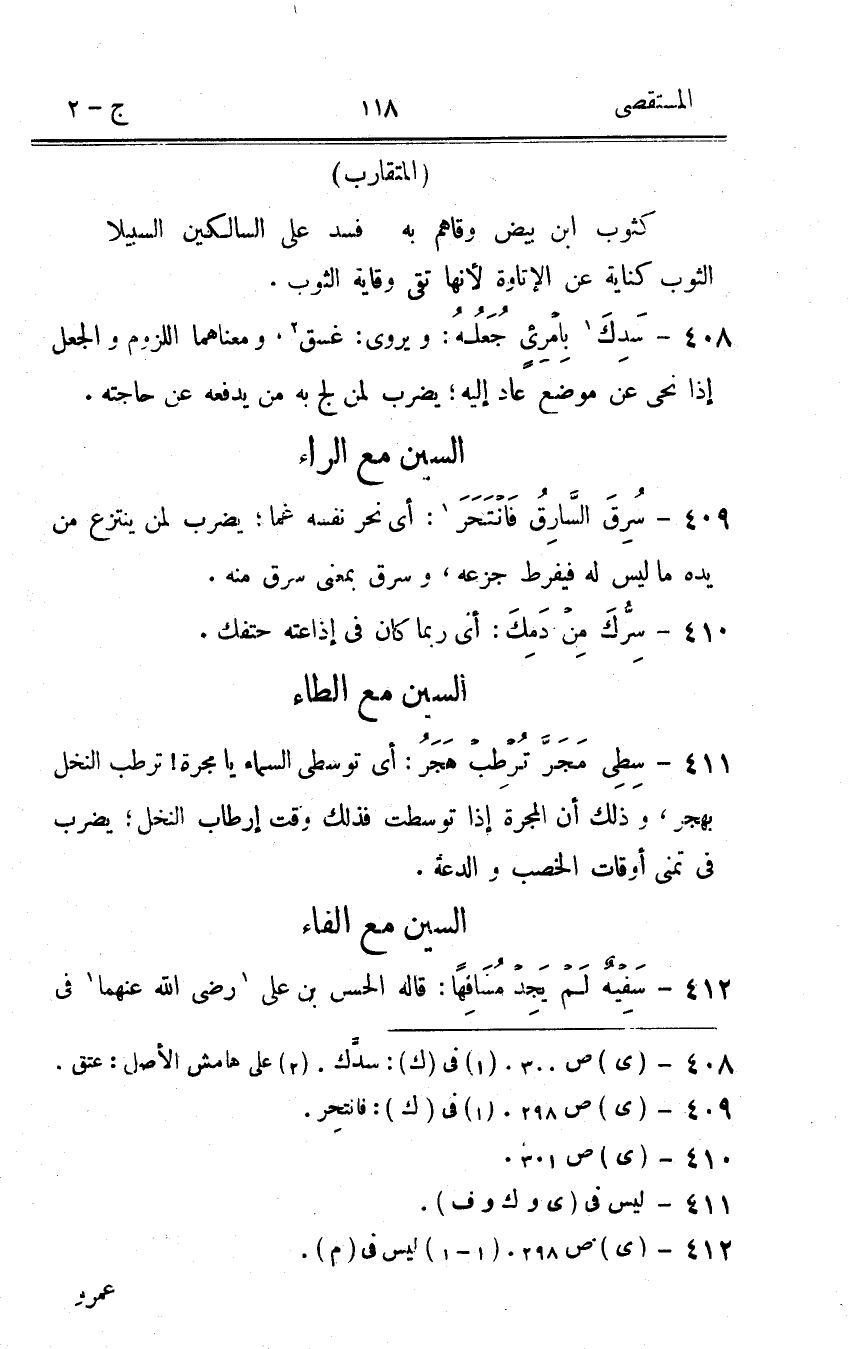 المستقصى ١١٨ ج – ٢
(المتقارب)
كثوب ابن بيض وقاهم به فسد على السالكين السبيلا
الثوب كناية عن الإتاوة لأنها تقى وقاية الثوب .
٤٠٨ – سَدِكَ ١ بِامْرِئٍ جُعَلُهُ : و يروى : غسق ٢ . و معناهما اللزوم و الجعل
إذا نحى عن موضع عاد إليه ؛ يضرب لمن لج به من يدفعه عن حاجته .
السين مع الراء
٤٠٩ – سُرِقَ السَّارِقُ فَانْتَحَرَ ١ : أى نحر نفسه غما ؛ يضرب لمن ينتزع من
يده ما ليس له فيفرط جزعه ، و سرق بمعنى سرق منه .
٤١٠ – سِرُّكَ مِنْ دَمِكَ : أى ربما كان فى إذاعته حتفك .
السين مع الطاء
٤١١ – سِطِى مَجَرَّ تُرْطِبْ هَجَرُ : أى توسطى السماء يا مجرة ! ترطب النخل
بهجر ، و ذلك أن المجرة إذا توسطت فذلك وقت إرطاب النخل ؛ يضرب
فى تمنى أوقات الخصب و الدعة .
السين مع الفاء
٤١٢ – سَفِيْهٌ لَمْ يَجِدْ مُسَافِهًا : قاله الحسن بن على ١ رضى الله عنهما ١ فى
٤٠٨ – (ى) ص ٣٠٠ . (١) فى (ك) : سدَّك . (٢) على هامش الأصل : عتق .
٤٠٩ – (ى) ص ٢٩٨ . (١) فى (ك) : فانتحِر .
٤١٠ – (ى) ص ٣٠١ .
٤١١ – ليس فى (ى و ك و ف) .
٤١٢ – (ى) ص ٢٩٨ . (١ – ١) ليس فى (م) .
عمرو